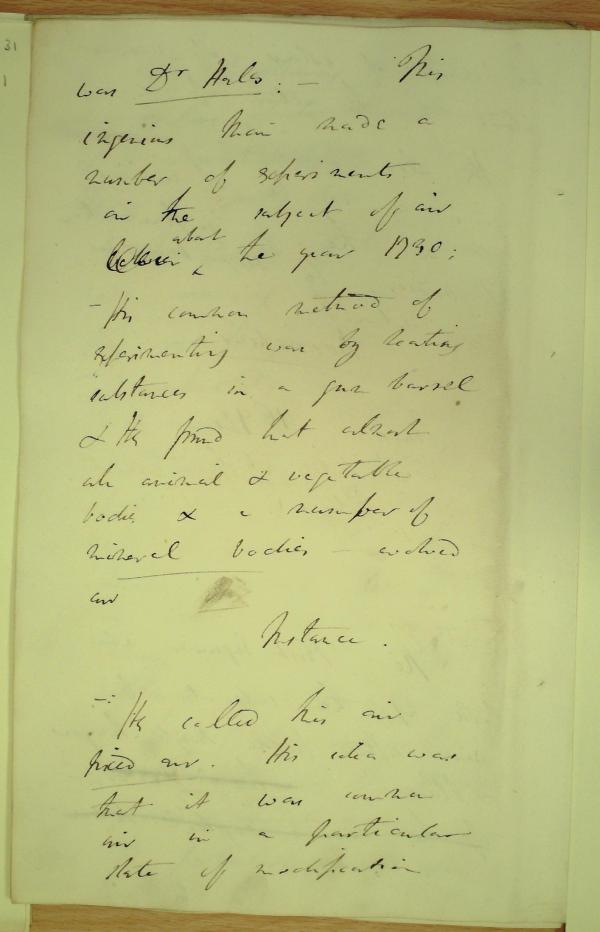 31
1
was Dr Hales: – This
ingenious Man made a
number of experiments
on the subject of air
about
the year 1730;
– His common method of
experimenting was by heating
substances in a gun barrel
& He found that almost
all animal & vegetable
bodies & a number of
mineral bodies – evolved
air
Instance.
– He called this air
fixed air. His idea was
that it was common
air in a particular
state of modification